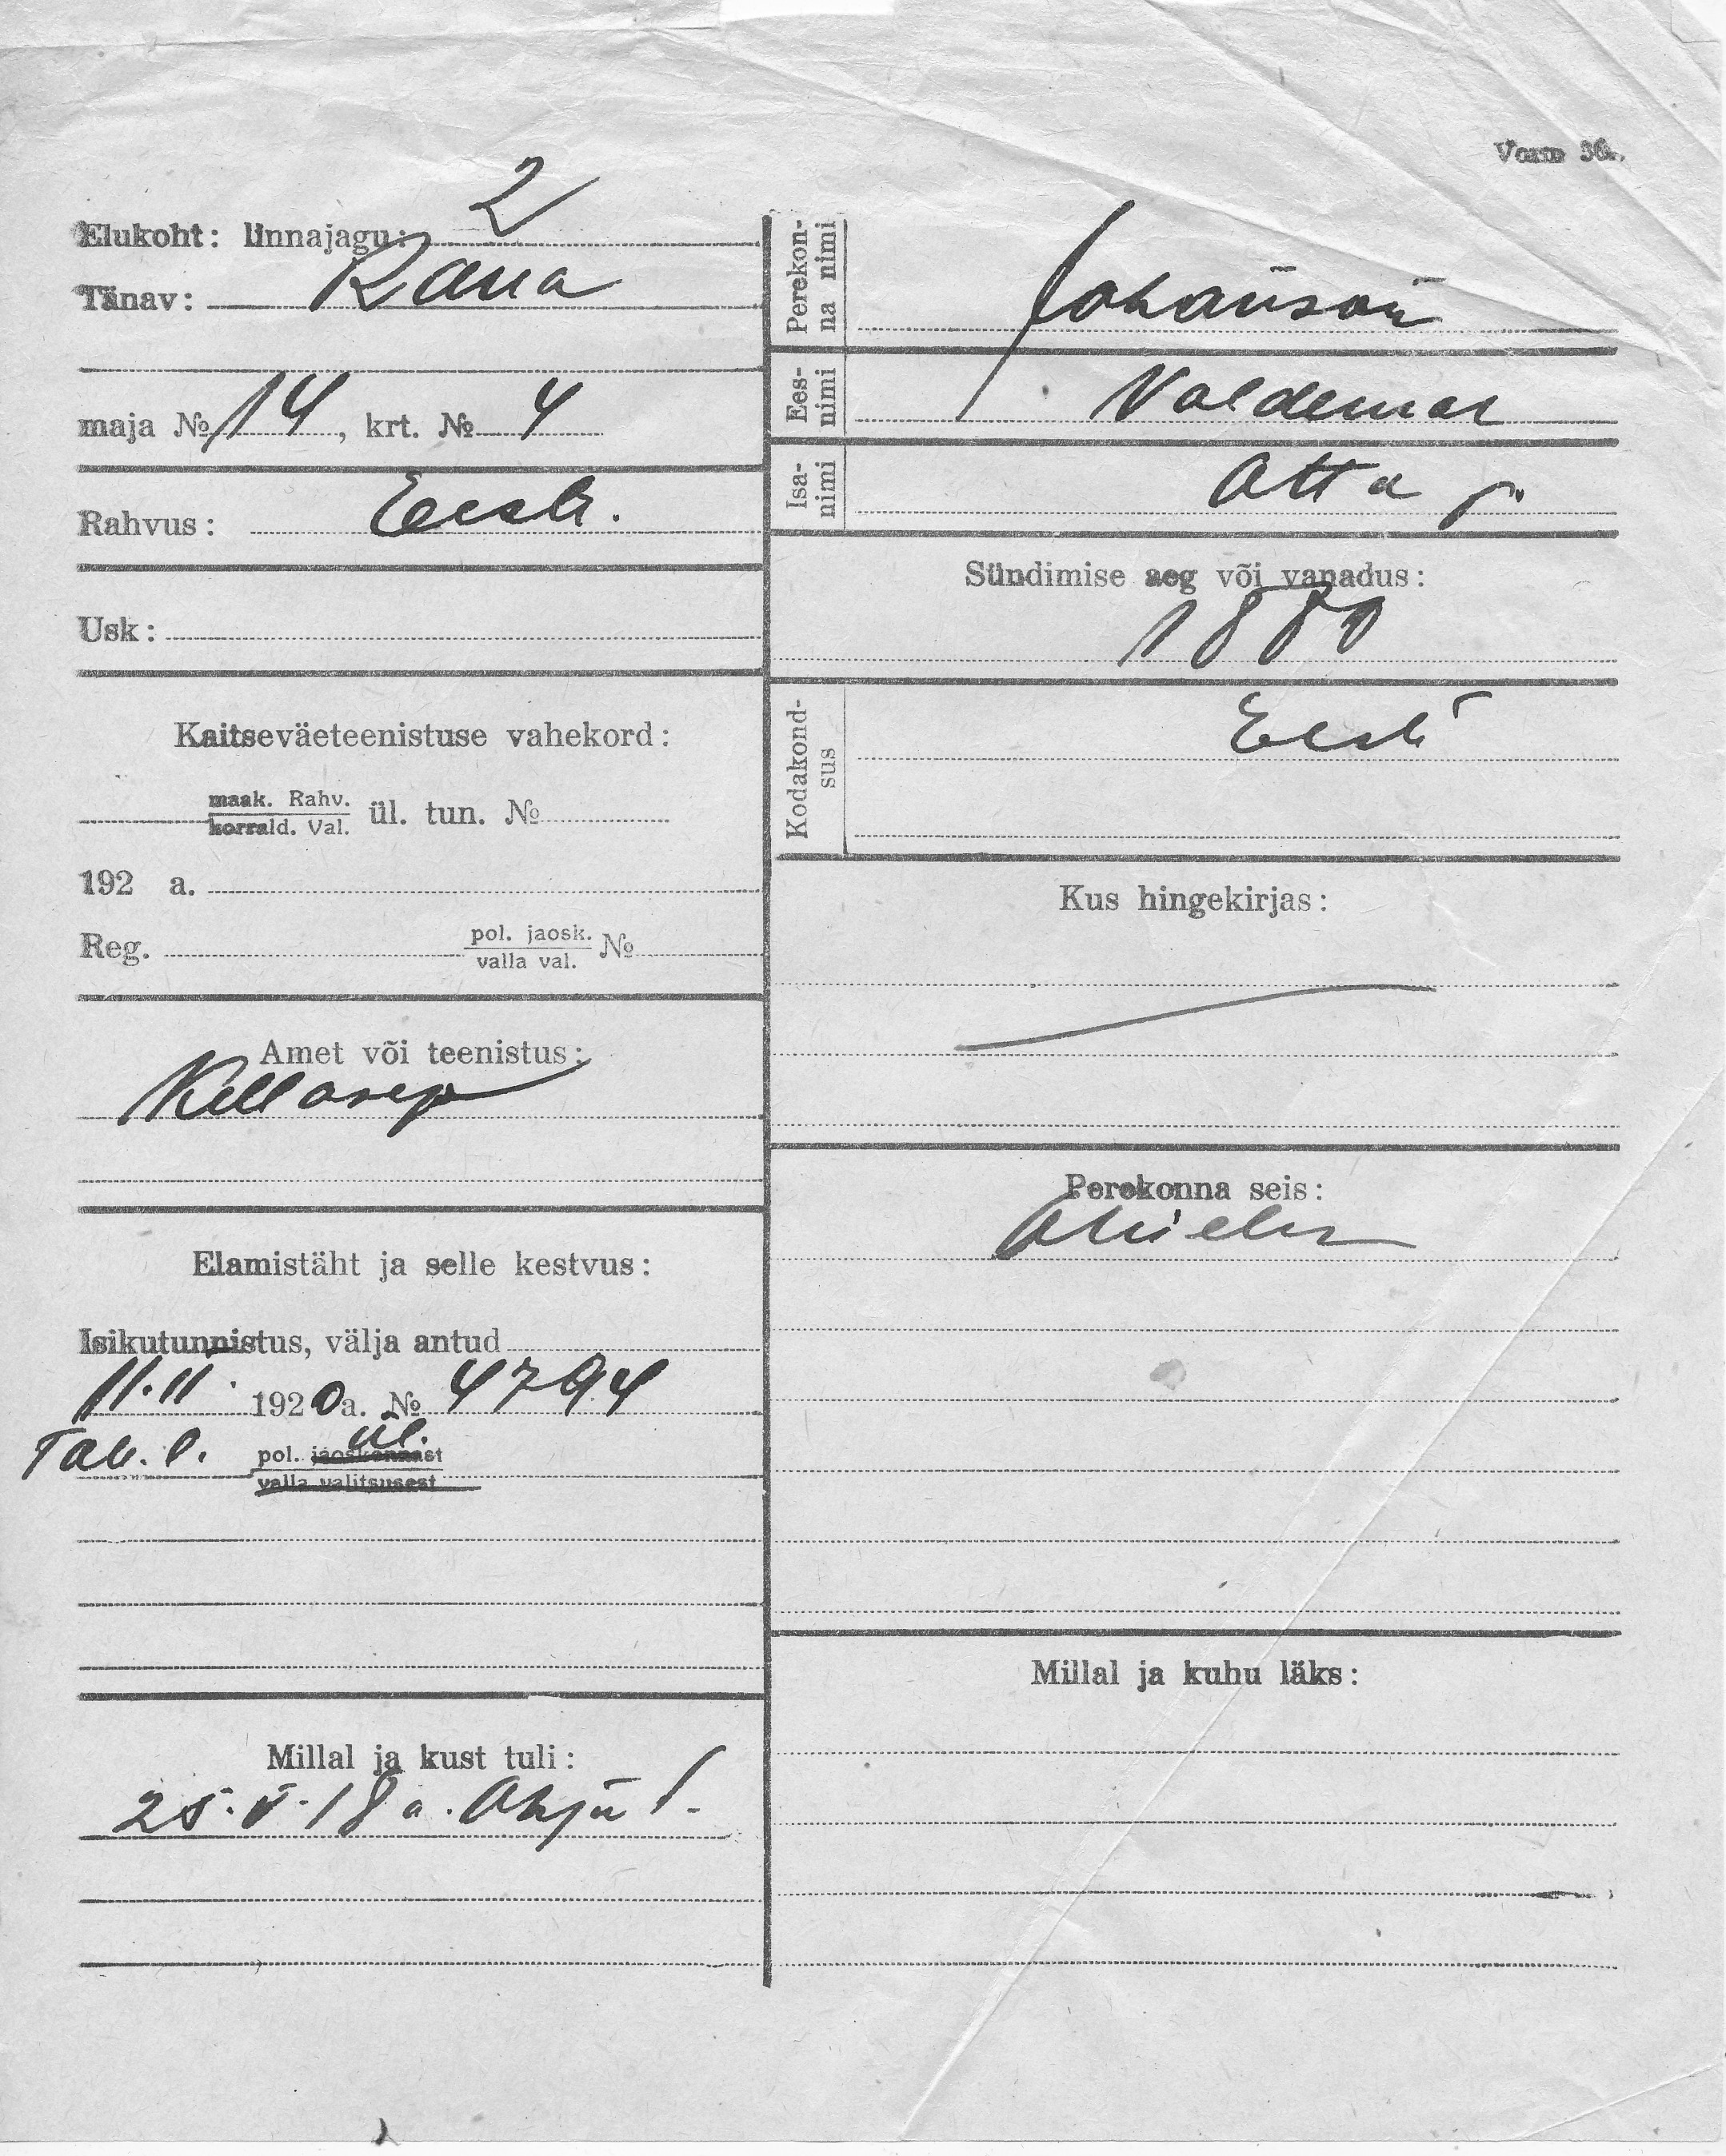 Vorm 36.
Elukoht: linnajagu: 2
Tänav: Raua
maja № 14, krt. № 4
Rahvus: Eesti.
Usk:
Kaitseväeteenistuse vahekord:
maak. Rahv.
korrald. Val. ül. tun. №
192 a.
Reg. pol. jaosk. №
valla val.
Amet või teenistus:
Kellasep
Elamistäht ja selle kestvus:
Isikutunnistus, välja antud
11.II. 1920 a. № 4794
Tall. l. pol. jaoskonnast ül.
valla valitsusest
Millal ja kust tuli:
25.V.18 a.
Perekon-
na nimi
Johanson
Ees-
nimi
Valdemar
Isa-
nimi
Otto p.
Sündimise aeg või vanadus:
1880
Kodakond-
sus
Eesti
Kus hingekirjas:
Perekonna seis:
Abielus
Millal ja kuhu läks: